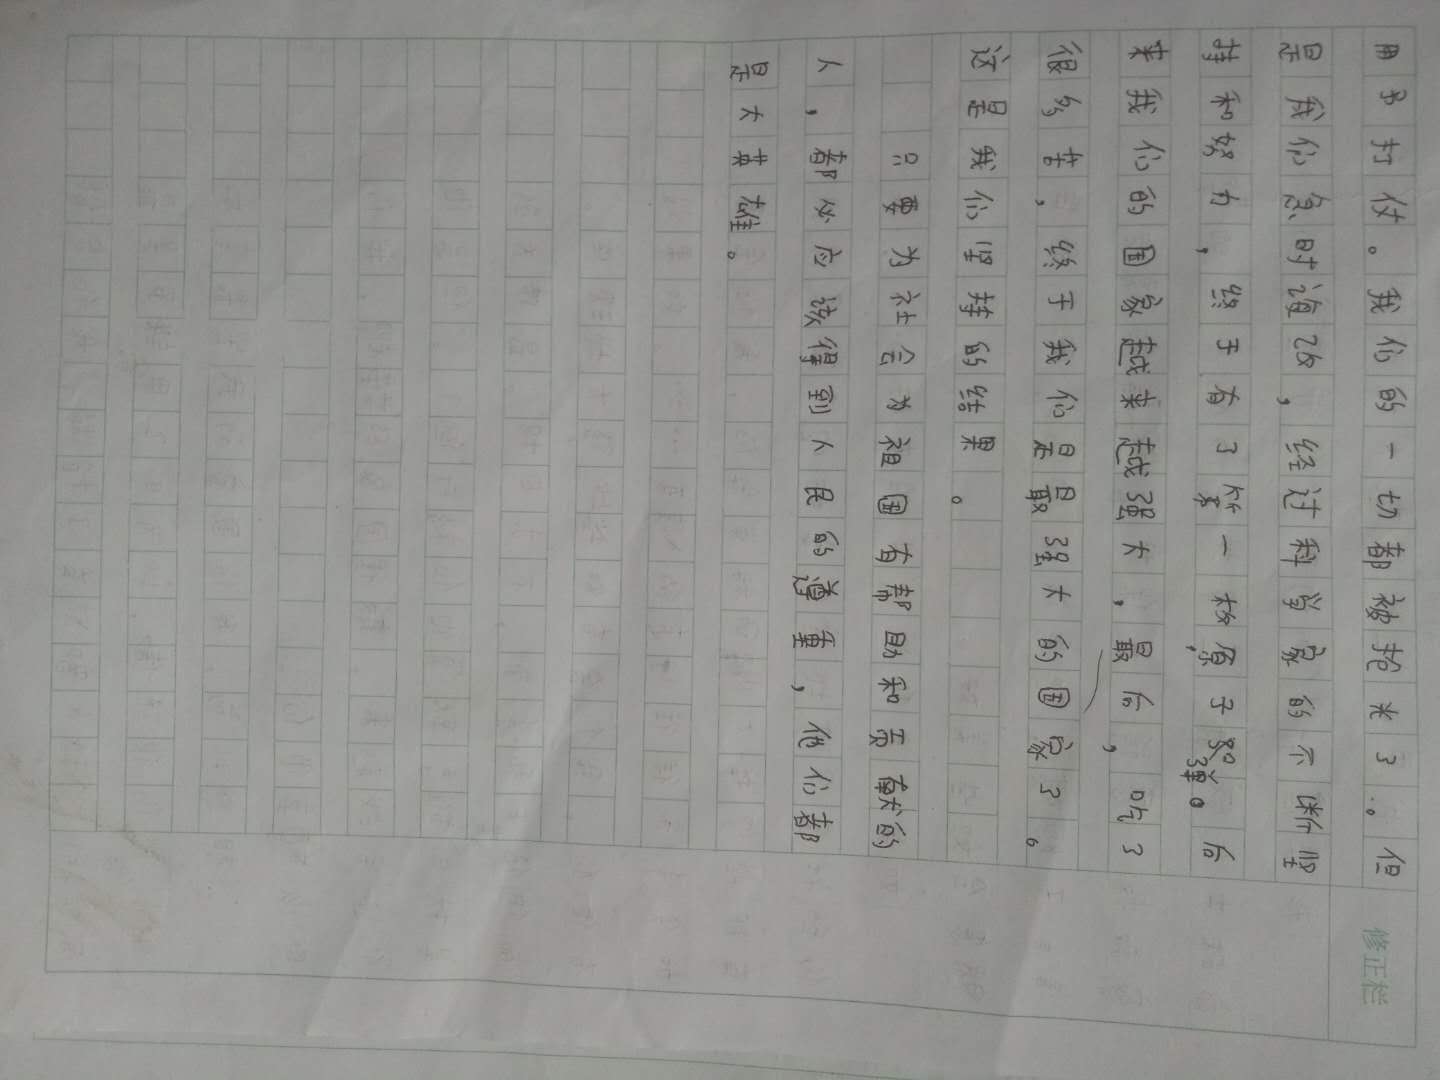 用书打仗。我们的一切都被抢来了。但
是我们急时改,经过科学家的不断坚
持和努力,终于有了第一枚原子弹。后
来我们的国家越来越强大,最后,吃了
很多苦,终于我们是最强大的国家了。
这是我们坚持的结果。
只要为社会为祖国有帮助和贡献的
人,都必应该得到人民的尊重,他们都
是大英雄。
修正栏